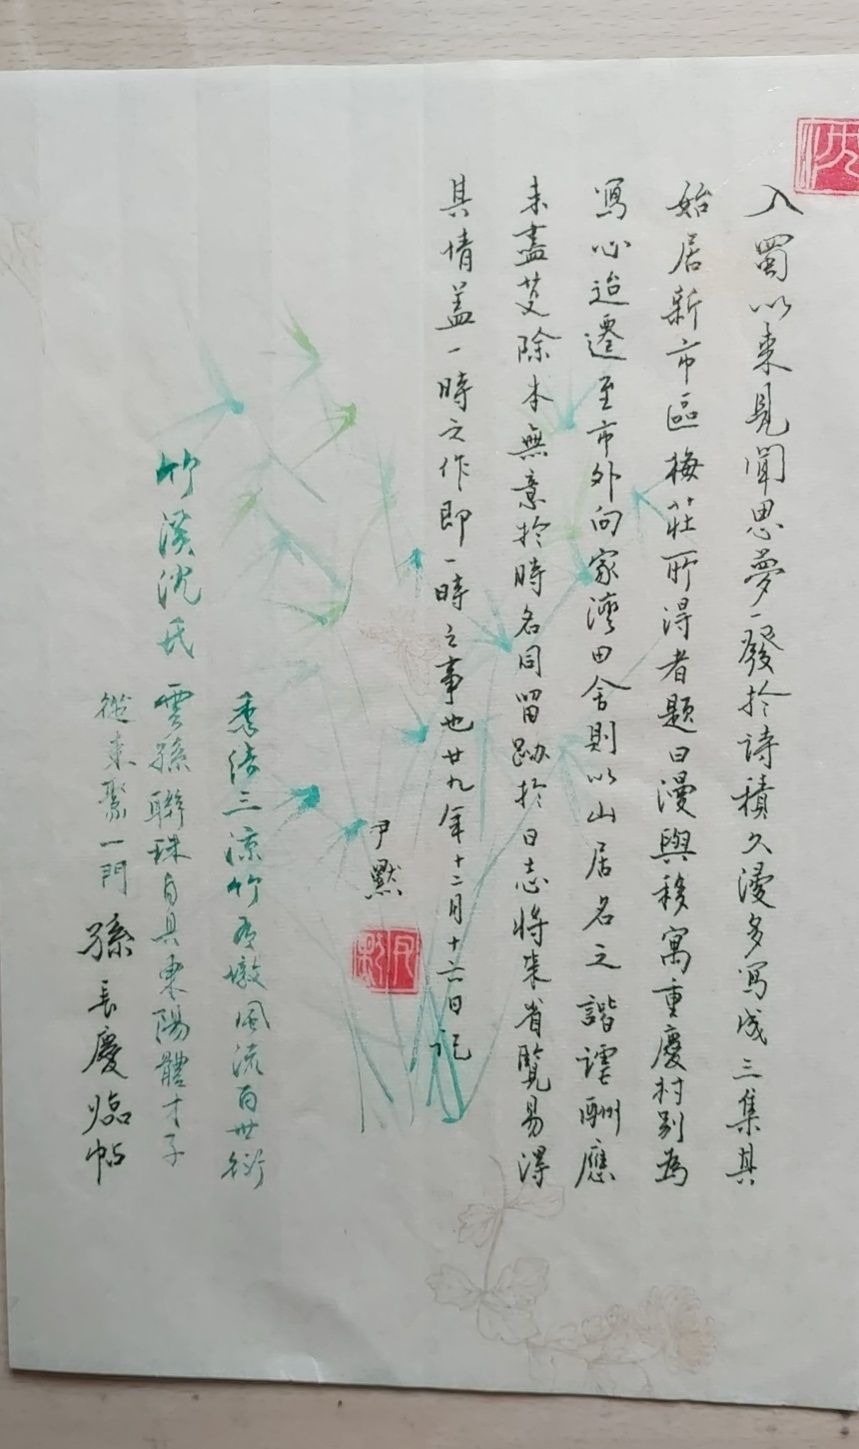 沈
入蜀以来見聞思夢一發於詩積久漫多寫成三集其
始居新市區梅莊所得者題曰漫與移寓重慶村別為
寫心迨遷至市外向家灣田舍則以山居名之諧謔酬應
未盡芟除本無意於時名同留跡於日志將来省覽易得
其情蓋一時之作即一時之事也廿九年十二月十六日記
尹默
尹默
三涼竹為墩風流百世衍
竹溪沈氏雲孫聯珠自具東陽體才子
從来聚一門孫長慶臨帖